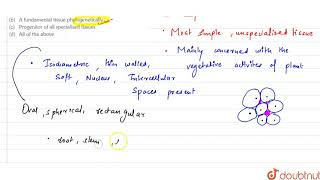 (b) A fundamental tissue phylogenetically
(c) Progenitor of all specialised tissues
(d) All of the above
• Most simple, unspecialised tissue
• Mainly concerned with the vegetative activities of plant
• Isodiametric, thin walled, soft, Nucleus, Intercellular spaces present
Oval, spherical, rectangular
• root, stem,
doubtnut